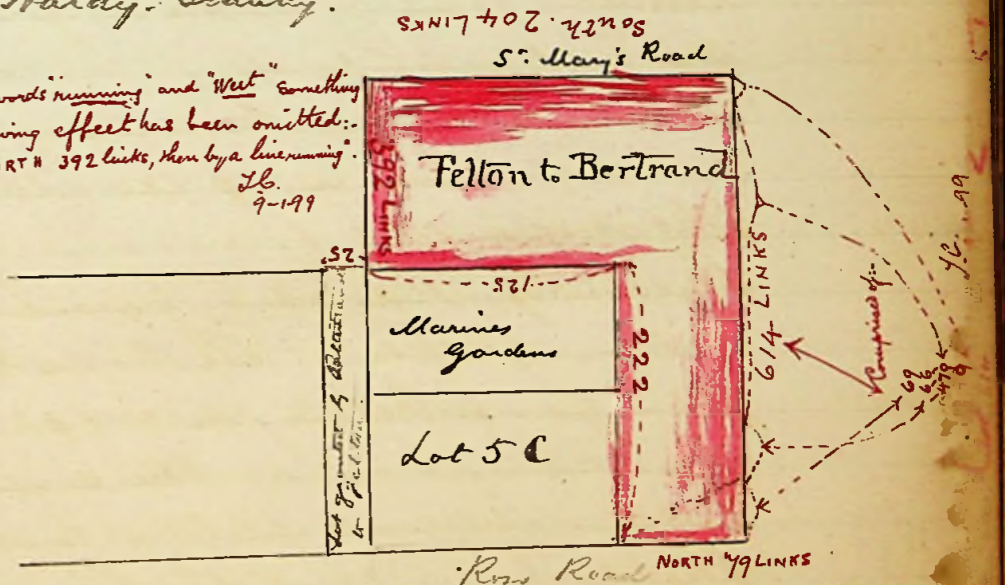 Hardy.
South. 204 LINKS
St. Mary's Road
words "running" and "West" something
wing effect has been omitted:-
RTH 392 links, then by a line running".
J.C.
9-1-99
392 LINKS
Felton to Bertrand
25
125
Marines
Gardens
Lot 5 C
Lot granted by
222
614 LINKS
Comprised of:-
69
66
479
J.C. 99
Ross Road
NORTH 79 LINKS